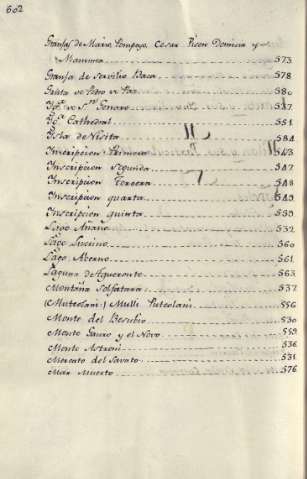 602
Granjas de Mario, Pompeyo, Cesar, Pison Domicia y
Mammea 573
Granja de Servilio Baca 578
Gruta de Pedro de Paz 580
Yg.ª de S.n Genaro 537
Yg.ª Cathedral 551
Ysla de Nisita 584
Inscripcion Primera 543
Inscripcion Segunda 547
Inscripcion Tercera 548
Inscripcion quarta 549
Inscripcion quinta 550
Lago Añano 532
Lago Lucrino 560
Lago Averno 561
Laguna de Aqueronte 563
Montaña Solfatara 537
(Muteolani) Mulli Puteolani 556
Monte del Besubio 530
Monte Gauro y el Novo 559
Monte Astroni 536
Mercato del Savato 531
Mar Muerto 576